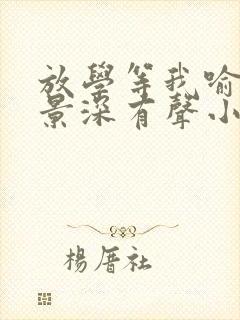 放學等我喻
景深有聲小
楊厝社